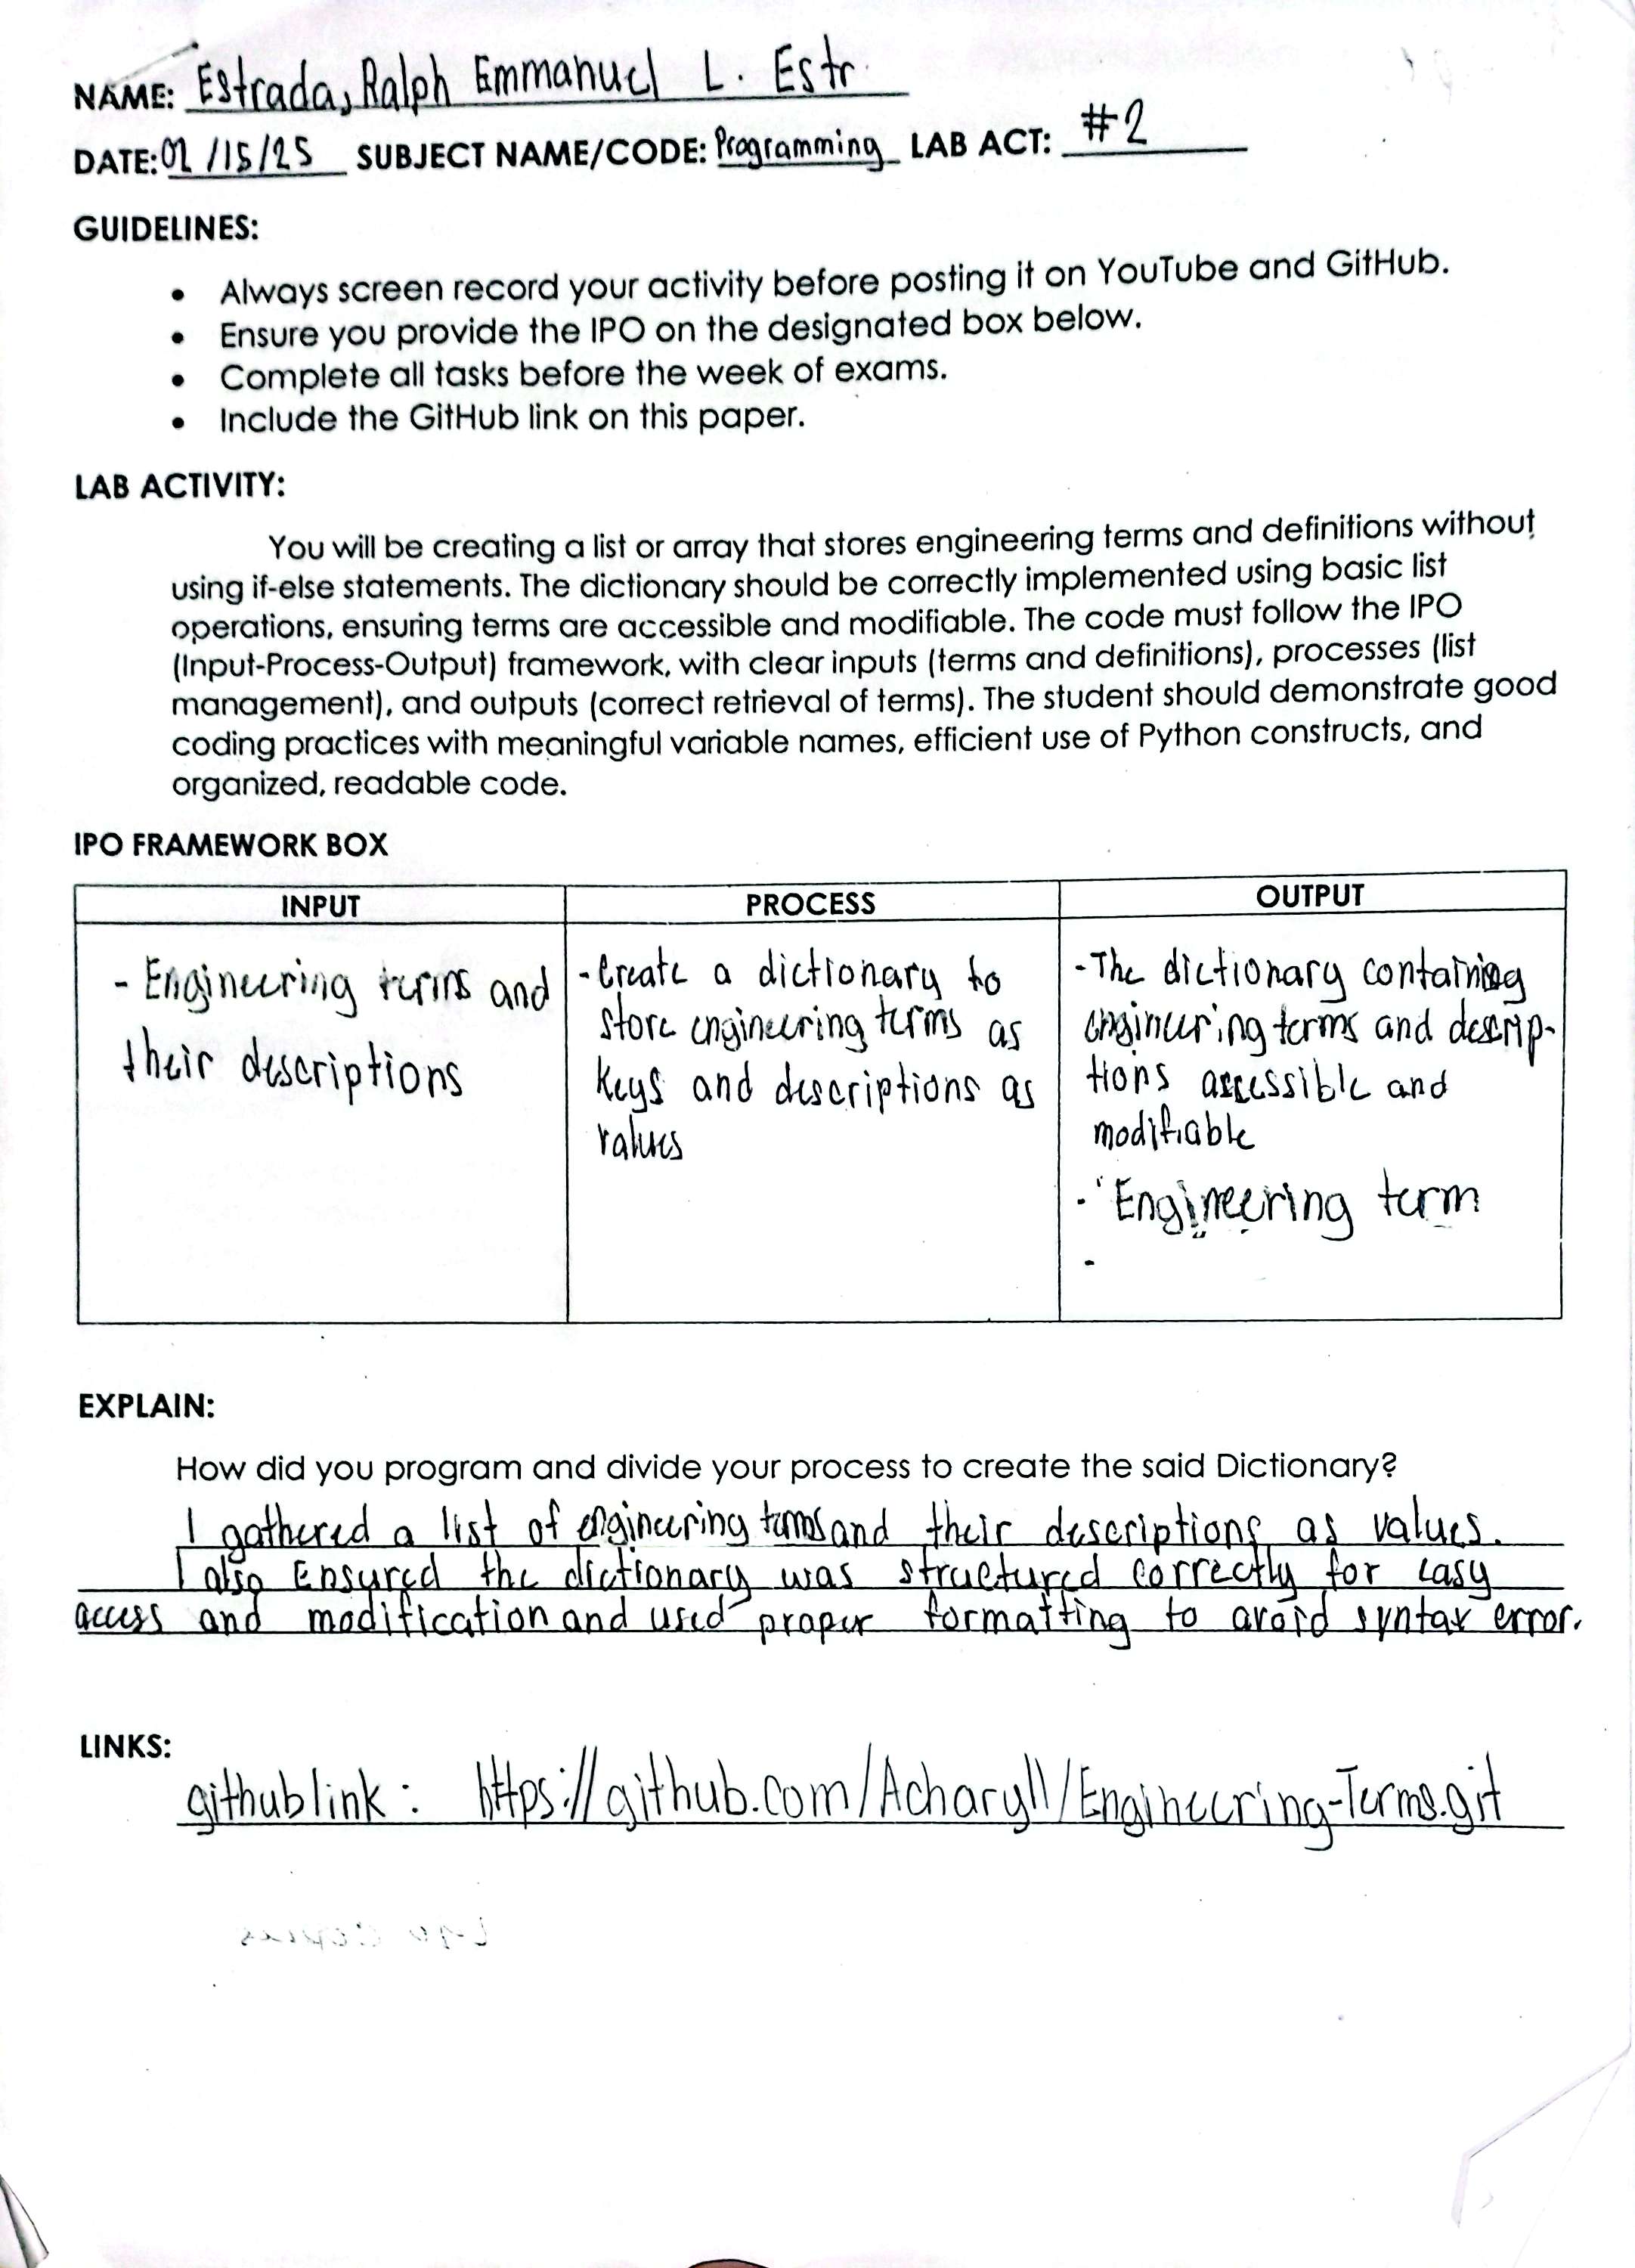 NAME: Estrada, Ralph Emmanuel L. Estr.
DATE: 02/15/25 SUBJECT NAME/CODE: Programming LAB ACT: #2
GUIDELINES:
• Always screen record your activity before posting it on YouTube and GitHub.
• Ensure you provide the IPO on the designated box below.
• Complete all tasks before the week of exams.
• Include the GitHub link on this paper.
LAB ACTIVITY:
You will be creating a list or array that stores engineering terms and definitions without
using if-else statements. The dictionary should be correctly implemented using basic list
operations, ensuring terms are accessible and modifiable. The code must follow the IPO
(Input-Process-Output) framework, with clear inputs (terms and definitions), processes (list
management), and outputs (correct retrieval of terms). The student should demonstrate good
coding practices with meaningful variable names, efficient use of Python constructs, and
organized, readable code.
IPO FRAMEWORK BOX
INPUT
- Engineering terms and
their descriptions
PROCESS
- Create a dictionary to
store engineering terms as
keys and descriptions as
values
OUTPUT
- The dictionary containing
engineering terms and descrip-
tions accessible and
modifiable
- 'Engineering term
-
EXPLAIN:
How did you program and divide your process to create the said Dictionary?
I gathered a list of engineering terms and their descriptions as values.
I also Ensured the dictionary was structured correctly for easy
access and modification and used proper formatting to avoid syntax error.
LINKS:
github link : https://github.com/Acharyll/Engineering-Terms.git